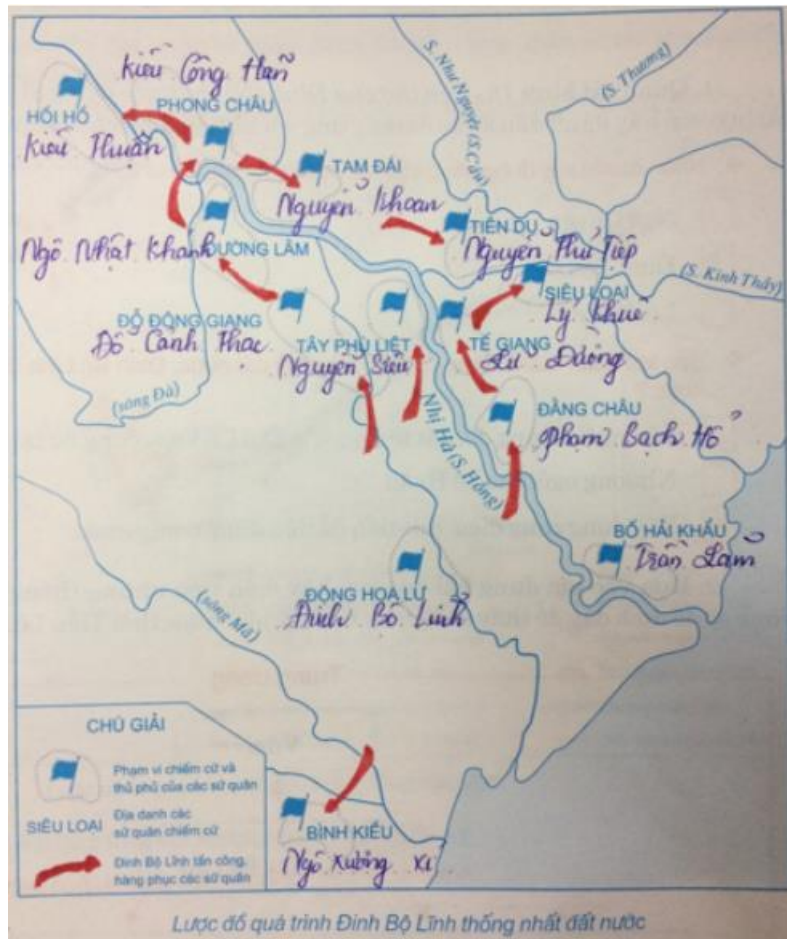 Kiều Công Hãn
PHONG CHÂU
HỒI HỒ
Kiều Thuận
S. Như Nguyệt (S. Cầu)
(S. Thương)
TAM ĐÁI
Nguyễn Khoan
TIÊN DU
Nguyễn Thủ Tiệp
Ngô Nhật Khánh
ĐƯỜNG LÂM
(S. Kinh Thầy)
SIÊU LOẠI
Lý Khuê
ĐỖ ĐỘNG GIANG
Đỗ Cảnh Thạc
TÂY PHÙ LIỆT
Nguyễn Siêu
TẾ GIANG
Lữ Đường
(sông Đà)
Nhị Hà (S. Hồng)
ĐẰNG CHÂU
Phạm Bạch Hổ
BỐ HẢI KHẨU
Trần Lãm
ĐỘNG HOA LƯ
Đinh Bộ Lĩnh
(sông Mã)
CHÚ GIẢI
Phạm vi chiếm cứ và
thủ phủ của các sứ quân
SIÊU LOẠI
Địa danh các
sứ quân chiếm cứ
Đinh Bộ Lĩnh tấn công,
hàng phục các sứ quân
BÌNH KIỀU
Ngô Xương Xí
Lược đồ quá trình Đinh Bộ Lĩnh thống nhất đất nước